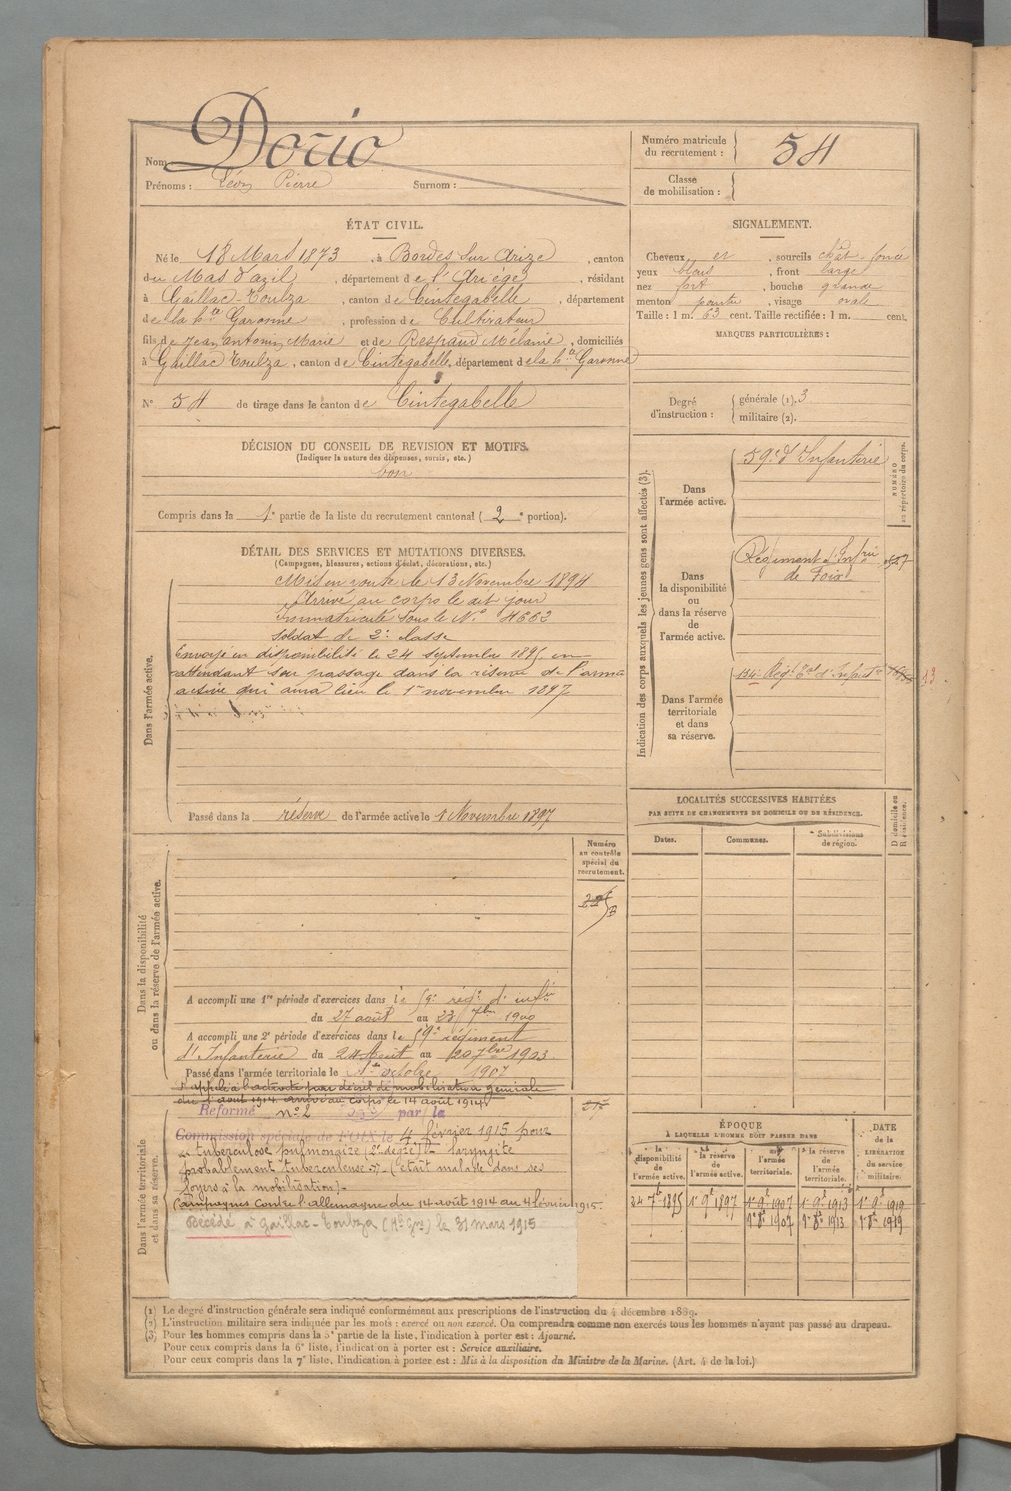 Nom Dorio
Prénoms : Léon Pierre Surnom :
Numéro matricule du recrutement : 54
Classe de mobilisation :
ÉTAT CIVIL.
Né le 18 Mars 1873, à Bordes sur Arize, canton
du Mas d'azil, département de l'Ariège, résidant
à Gaillac-Toulza, canton de Cintegabelle, département
de la hte Garonne, profession de Cultivateur
fils de Jean Antonin Marie et de Respaud Mélanie, domiciliés
à Gaillac Toulza, canton de Cintegabelle, département de la hte Garonne
No 54 de tirage dans le canton de Cintegabelle
SIGNALEMENT.
Cheveux et, sourcils chât. foncé
yeux bleus, front large
nez fort, bouche grande
menton pointu, visage ovale
Taille : 1 m. 63 cent. Taille rectifiée : 1 m. cent.
MARQUES PARTICULIÈRES :
Degré d'instruction : générale (1). 3
militaire (2).
DÉCISION DU CONSEIL DE REVISION ET MOTIFS.
(Indiquer la nature des dispenses, sursis, etc.)
bon
Compris dans la 1e partie de la liste du recrutement cantonal (2e portion).
DÉTAIL DES SERVICES ET MUTATIONS DIVERSES.
(Campagnes, blessures, actions d'éclat, décorations, etc.)
Dans l'armée active.
Mis en route le 13 Novembre 1894
Arrivé au corps le dit jour
Immatriculé sous le No 4663
soldat de 2e classe
Envoyé en disponibilité le 24 septembre 1895 en
attendant son passage dans la réserve de l'armée
active qui aura lieu le 1er novembre 1897
Passé dans la réserve de l'armée active le 1 Novembre 1897
Indication des corps auxquels les jeunes gens sont affectés (3).
NUMÉRO au répertoire du corps.
Dans l'armée active.
59e d'Infanterie
Dans la disponibilité ou dans la réserve de l'armée active.
Régiment d'Infrie
de Foix
Dans l'armée territoriale et dans sa réserve.
134e Régt Tal d'Infanterie
13
LOCALITÉS SUCCESSIVES HABITÉES
PAR SUITE DE CHANGEMENTS DE DOMICILE OU DE RÉSIDENCE.
Dates. Communes. Subdivisions de région. D domicile ou R résidence.
Dans la disponibilité ou dans la réserve de l'armée active.
Numéro au contrôle spécial du recrutement.
A accompli une 1re période d'exercices dans le 59e régt d'infie
du 27 août au 23 7bre 1900
A accompli une 2e période d'exercices dans le 59e régiment
d'Infanterie du 24 Août au 20 7bre 1903.
Passé dans l'armée territoriale le 1er octobre 1907
Dans l'armée territoriale et dans sa réserve.
Rappelé à l'activité par décret de mobilisation générale
du 1er août 1914. arrivé au corps le 14 août 1914
Réformé no 2 par la
Commission spéciale de FOIX le 4 février 1915 pour
tuberculose pulmonaire (2e degré) laryngite
probablement tuberculeuse (était malade dans ses
foyers à la mobilisation)
Campagnes contre l'allemagne du 14 août 1914 au 4 février 1915.
Décédé à Gaillac-Toulza (Hte Gne) le 31 mars 1915
ÉPOQUE
À LAQUELLE L'HOMME DOIT PASSER DANS
DATE de la LIBÉRATION du service militaire.
la disponibilité de l'armée active. la réserve de l'armée active. l'armée territoriale. la réserve de l'armée territoriale.
24 7bre 1895 1er 9bre 1897 1er 9bre 1907 1er 9bre 1913 1er 9bre 1919
1er 8bre 1907 1er 8bre 1913 1er 8bre 1919
(1) Le degré d'instruction générale sera indiqué conformément aux prescriptions de l'instruction du 4 décembre 1889.
(2) L'instruction militaire sera indiquée par les mots : exercé ou non exercé. On comprendra comme non exercés tous les hommes n'ayant pas passé au drapeau.
(3) Pour les hommes compris dans la 5e partie de la liste, l'indication à porter est : Ajourné.
Pour ceux compris dans la 6e liste, l'indication à porter est : Service auxiliaire.
Pour ceux compris dans la 7e liste, l'indication à porter est : Mis à la disposition du Ministre de la Marine. (Art. 4 de la loi.)